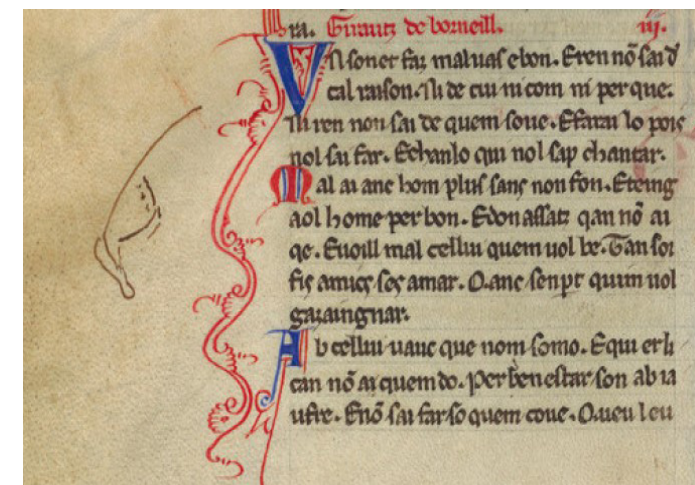 ra. Girautz de borneill. iij.
Un soner faz maluas e bon. E ren nõ sai d
cal raison. Ni de cui ni com ni per que.
Ni ren non sai de quem soue. E farai lo pois
nol sai far. E chanlo qui nol sap chantar.
Mal ai anc hom plus sans non fon. E teing
aol home per bon. E don assatz qan nõ ai
qe. E uoill mal celliu quem uol be. Tan soi
fis amics ses amar. Q anc senpt quim uol
gazaingnar.
Ab celliu uauc que nom somo. E qui er li
can nõ ai quem do. Per ben estar son ab ia
ufre. E nõ sai far so quem coue. Q ueu leu